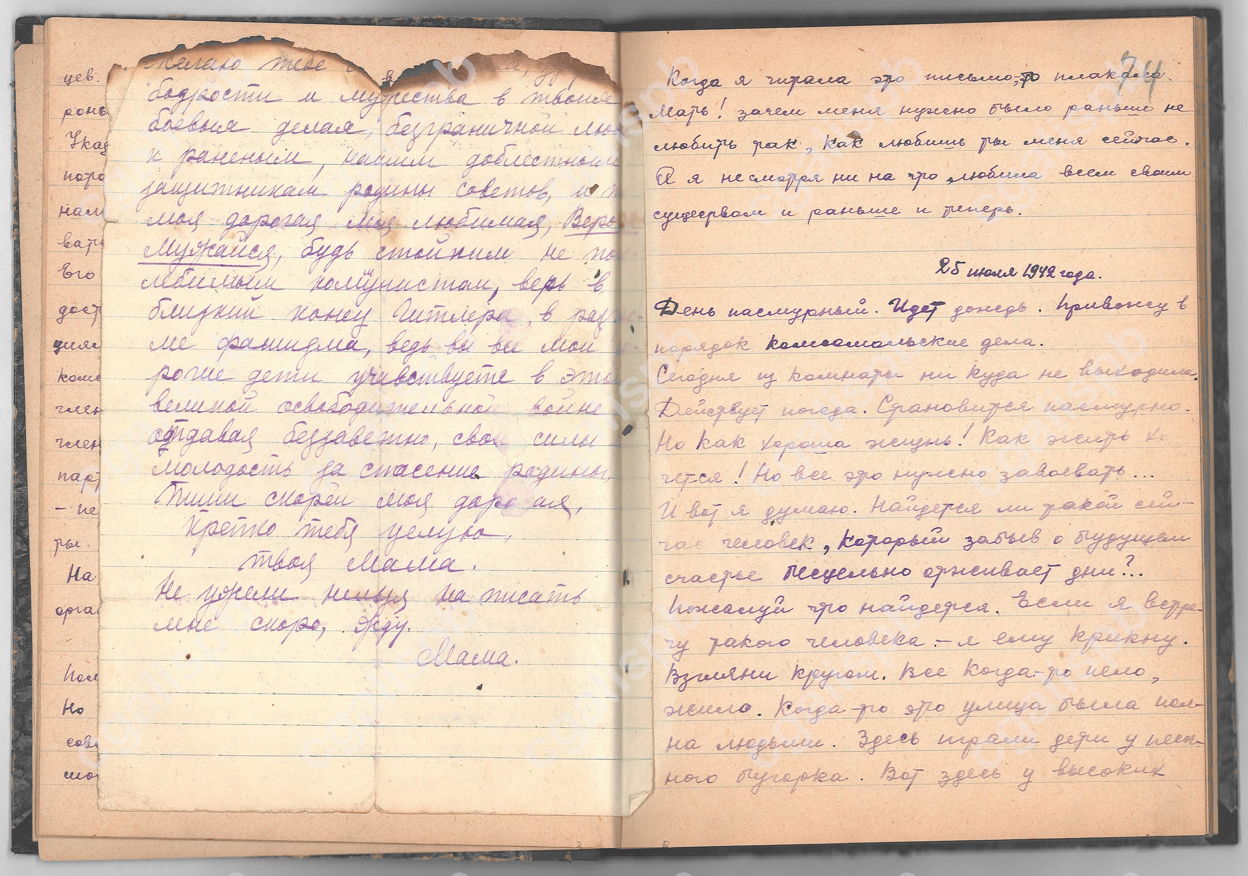 желаю тебе
бодрости и мужества в твоих
боевых делах, безграничной люб
к раненым, нашим доблестным
защитникам родины советов, и т
моя дорогая моя любимая, Вероч
Мужайся, будь стойким не пок
лебимым комунистом, верь в
близкий конец Гитлера, в разг
ме фашизма, ведь вы все мои до
рогие дети учавствуете в этой
великой освободительной войне
отдавая беззаветно, свои силы
молодость за спасение родины,
Пиши скорей моя дорогая,
Крепко тебя целую,
твоя Мама.
Не ужели нельзя на писать
мне скоро, Жду.
Мама.
цев.
ронь
Указ
наш
вать
Его
дост
комс
член
член
парт
- не
ты.
На
орга
Пол
Но
сов
74
Когда я читала это письмо, то плакала.
Мать! зачем меня нужно было раньше не
любить так, как любишь ты меня сейчас.
А я несмотря ни на что, любила всем своим
существом и раньше и теперь.
25 июля 1942 года.
День пасмурный. Идет дождь. Привожу в
порядок комсомольские дела.
Сегодня из комнаты ни куда не выходила.
Действует погода. Становится пасмурно.
Но как хороша жизнь! Как жить хо
чется! Но все это нужно завоевать...
И вот я думаю. Найдется ли такой сей-
час человек, который забыв о будущем
счастье бесцельно отживает дни?..
Пожалуй что найдется. Если я встре-
чу такого человека - я ему крикну.
Взгляни кругом. Все когда-то пело,
жило. Когда-то это улица была пол-
на людьми. Здесь играли дети у песоч-
ного бугорка. Вот здесь у высоких
cgaipdspb